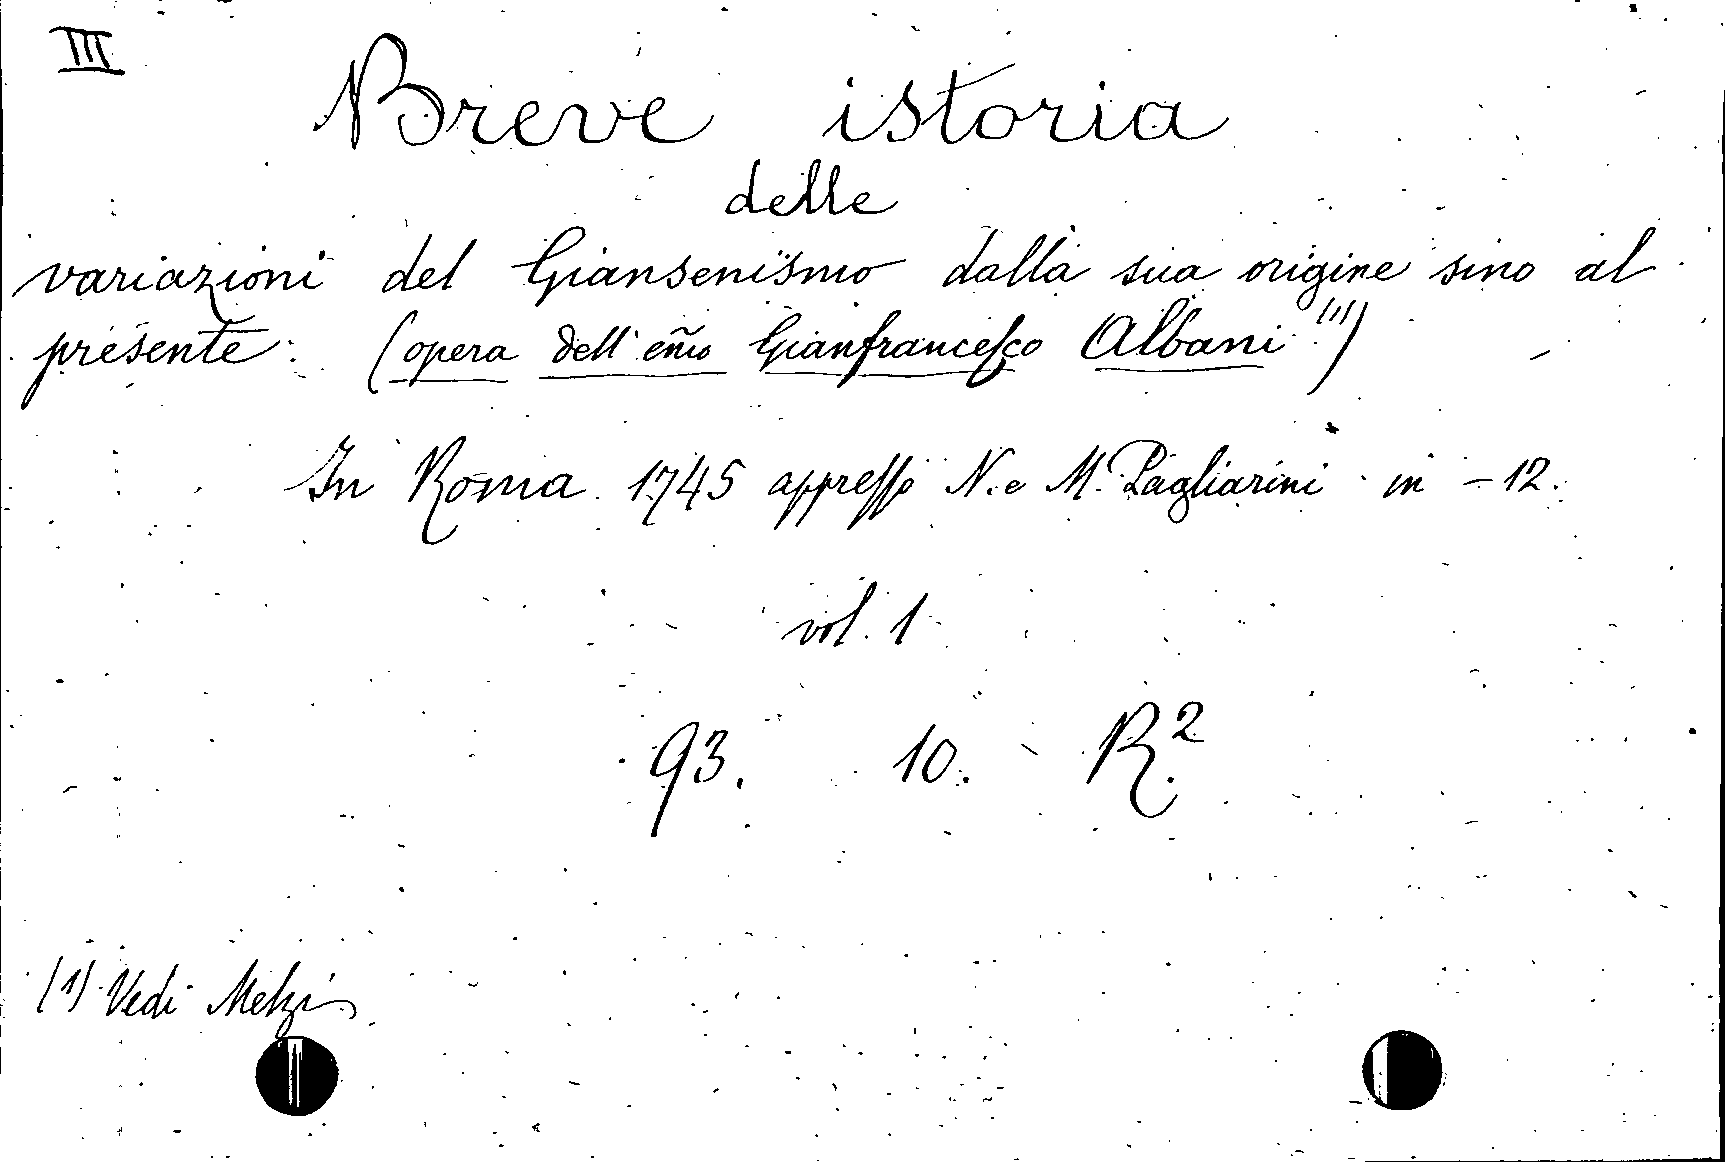 III
Breve istoria
delle
variazioni del Giansenismo dalla sua origine sino al
presente. (opera dell'em̃o Gianfrancesco Albani (1))
In Roma 1745 appresso N. e M. Pagliarini in -12.
vol. 1
93. 10. R.²
(1) Vedi Melzi